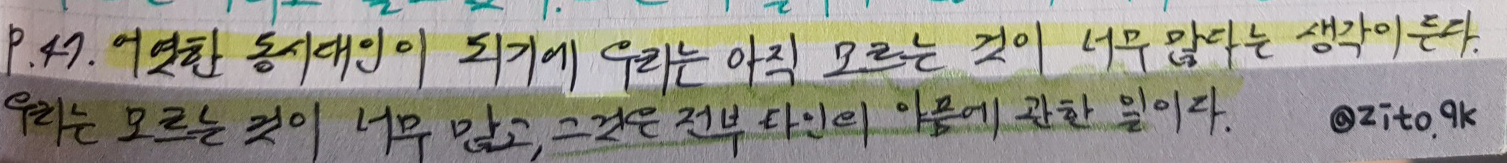 P.47. 어엿한 동시대인이 되기에 우리는 아직 모르는 것이 너무 많다는 생각이 든다.
우리는 모르는 것이 너무 많고, 그것은 전부 타인의 아픔에 관한 일이다. @zito.9k